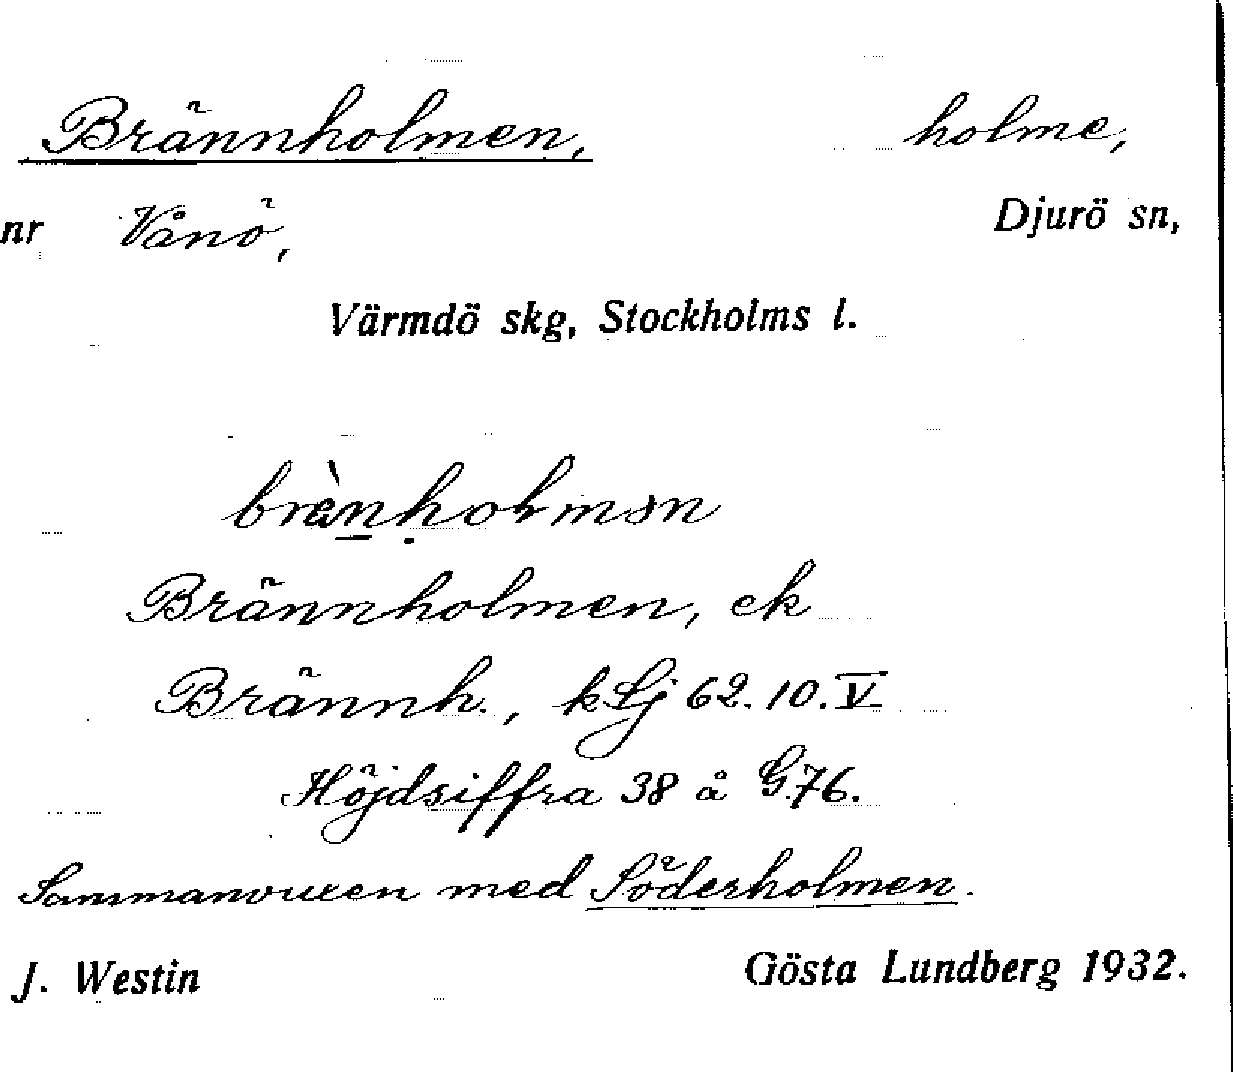 Brännholmen, holme,
nr Vånö, Djurö sn,
Värmdö skg, Stockholms l.
brä̀nholmən
Brännholmen, ek
Brännh., kLj 62.10.V
Höjdsiffra 38 å G.76.
Sammanvuxen med Söderholmen.
J. Westin Gösta Lundberg 1932.